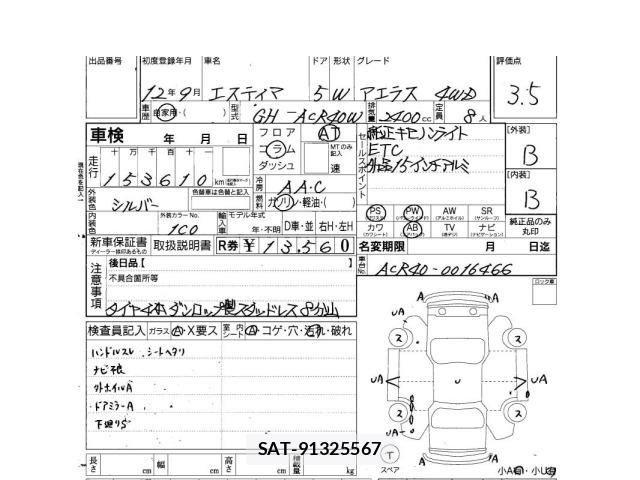 出品番号 初度登録年月 車名 ドア 形状 グレード 評価点
12年9月 エスティマ 5 W アエラス 4WD 3.5
車歴 自家用・( ) 型式 GH-ACR40W 排気量 2400cc 定員 8人
車検 年 月 日 フロア AT セールスポイント 純正キセノンライト 【外装】
走行 十 万 千 百 十 一 コラム MTのみ記入 ETC B
153610km ダッシュ 速 外品15インチアルミ
現在色を記入 外装色 シルバー 色替車は色替と記入 冷房 AA・C 【内装】
燃料 ガソリン・軽油・( ) B
内装色 外装カラーNo. 1C0 輸入車 モデル年式 年・不明 D車・並 右H・左H
PS PW AW SR 純正品のみ丸印
カワ AB TV ナビ
新車保証書 取扱説明書 R券 ¥13,560 名変期限 月 日迄
ディーラー印のあるもの
注意事項 後日品【 】 車台No. ACR40-0016466
不具合箇所等 ロック車
検査員記入 ガラス A・X要ス 室内シート A・コゲ・穴・汚れ・破れ
ハンドルスレ シートヘタリ
ドアミラーA
下廻りS
UA A A
ス ス
UA U UA
ス ス
UA A A
T
スペア
SAT-91325567
長さ cm 幅 cm 高さ cm 積載量 kg